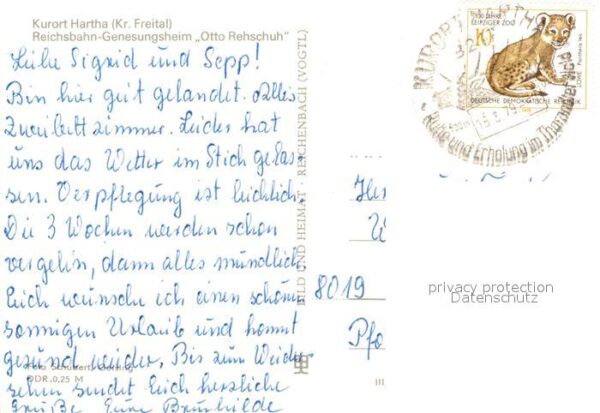 Kurort Hartha (Kr. Freital)
Reichsbahn-Genesungsheim „Otto Rehschuh"
Liebe Sigrid und Sepp!
Bin hier gut gelandet. Alles
Zweibettzimmer. Leider hat
uns das Wetter im Stich gelas-
sen. Verpflegung ist reichlich.
Die 3 Wochen werden schon
vergehn, dann alles mündlich.
Euch wünsche ich einen schönen
sonnigen Urlaub und kommt
gesund wieder. Bis zum Wieder-
sehen sendet Euch herzliche
Grüße Eure Brunhilde
DDR 0,25 M
BILD UND HEIMAT · REICHENBACH (VOGTL)
III
100 JAHRE
LEIPZIGER ZOO
10
LÖWE Panthera leo
DEUTSCHE DEMOKRATISCHE REPUBLIK
KURORT HARTHA
Ruhe und Erholung im Tharandter Wald
8019
privacy protection
Datenschutz